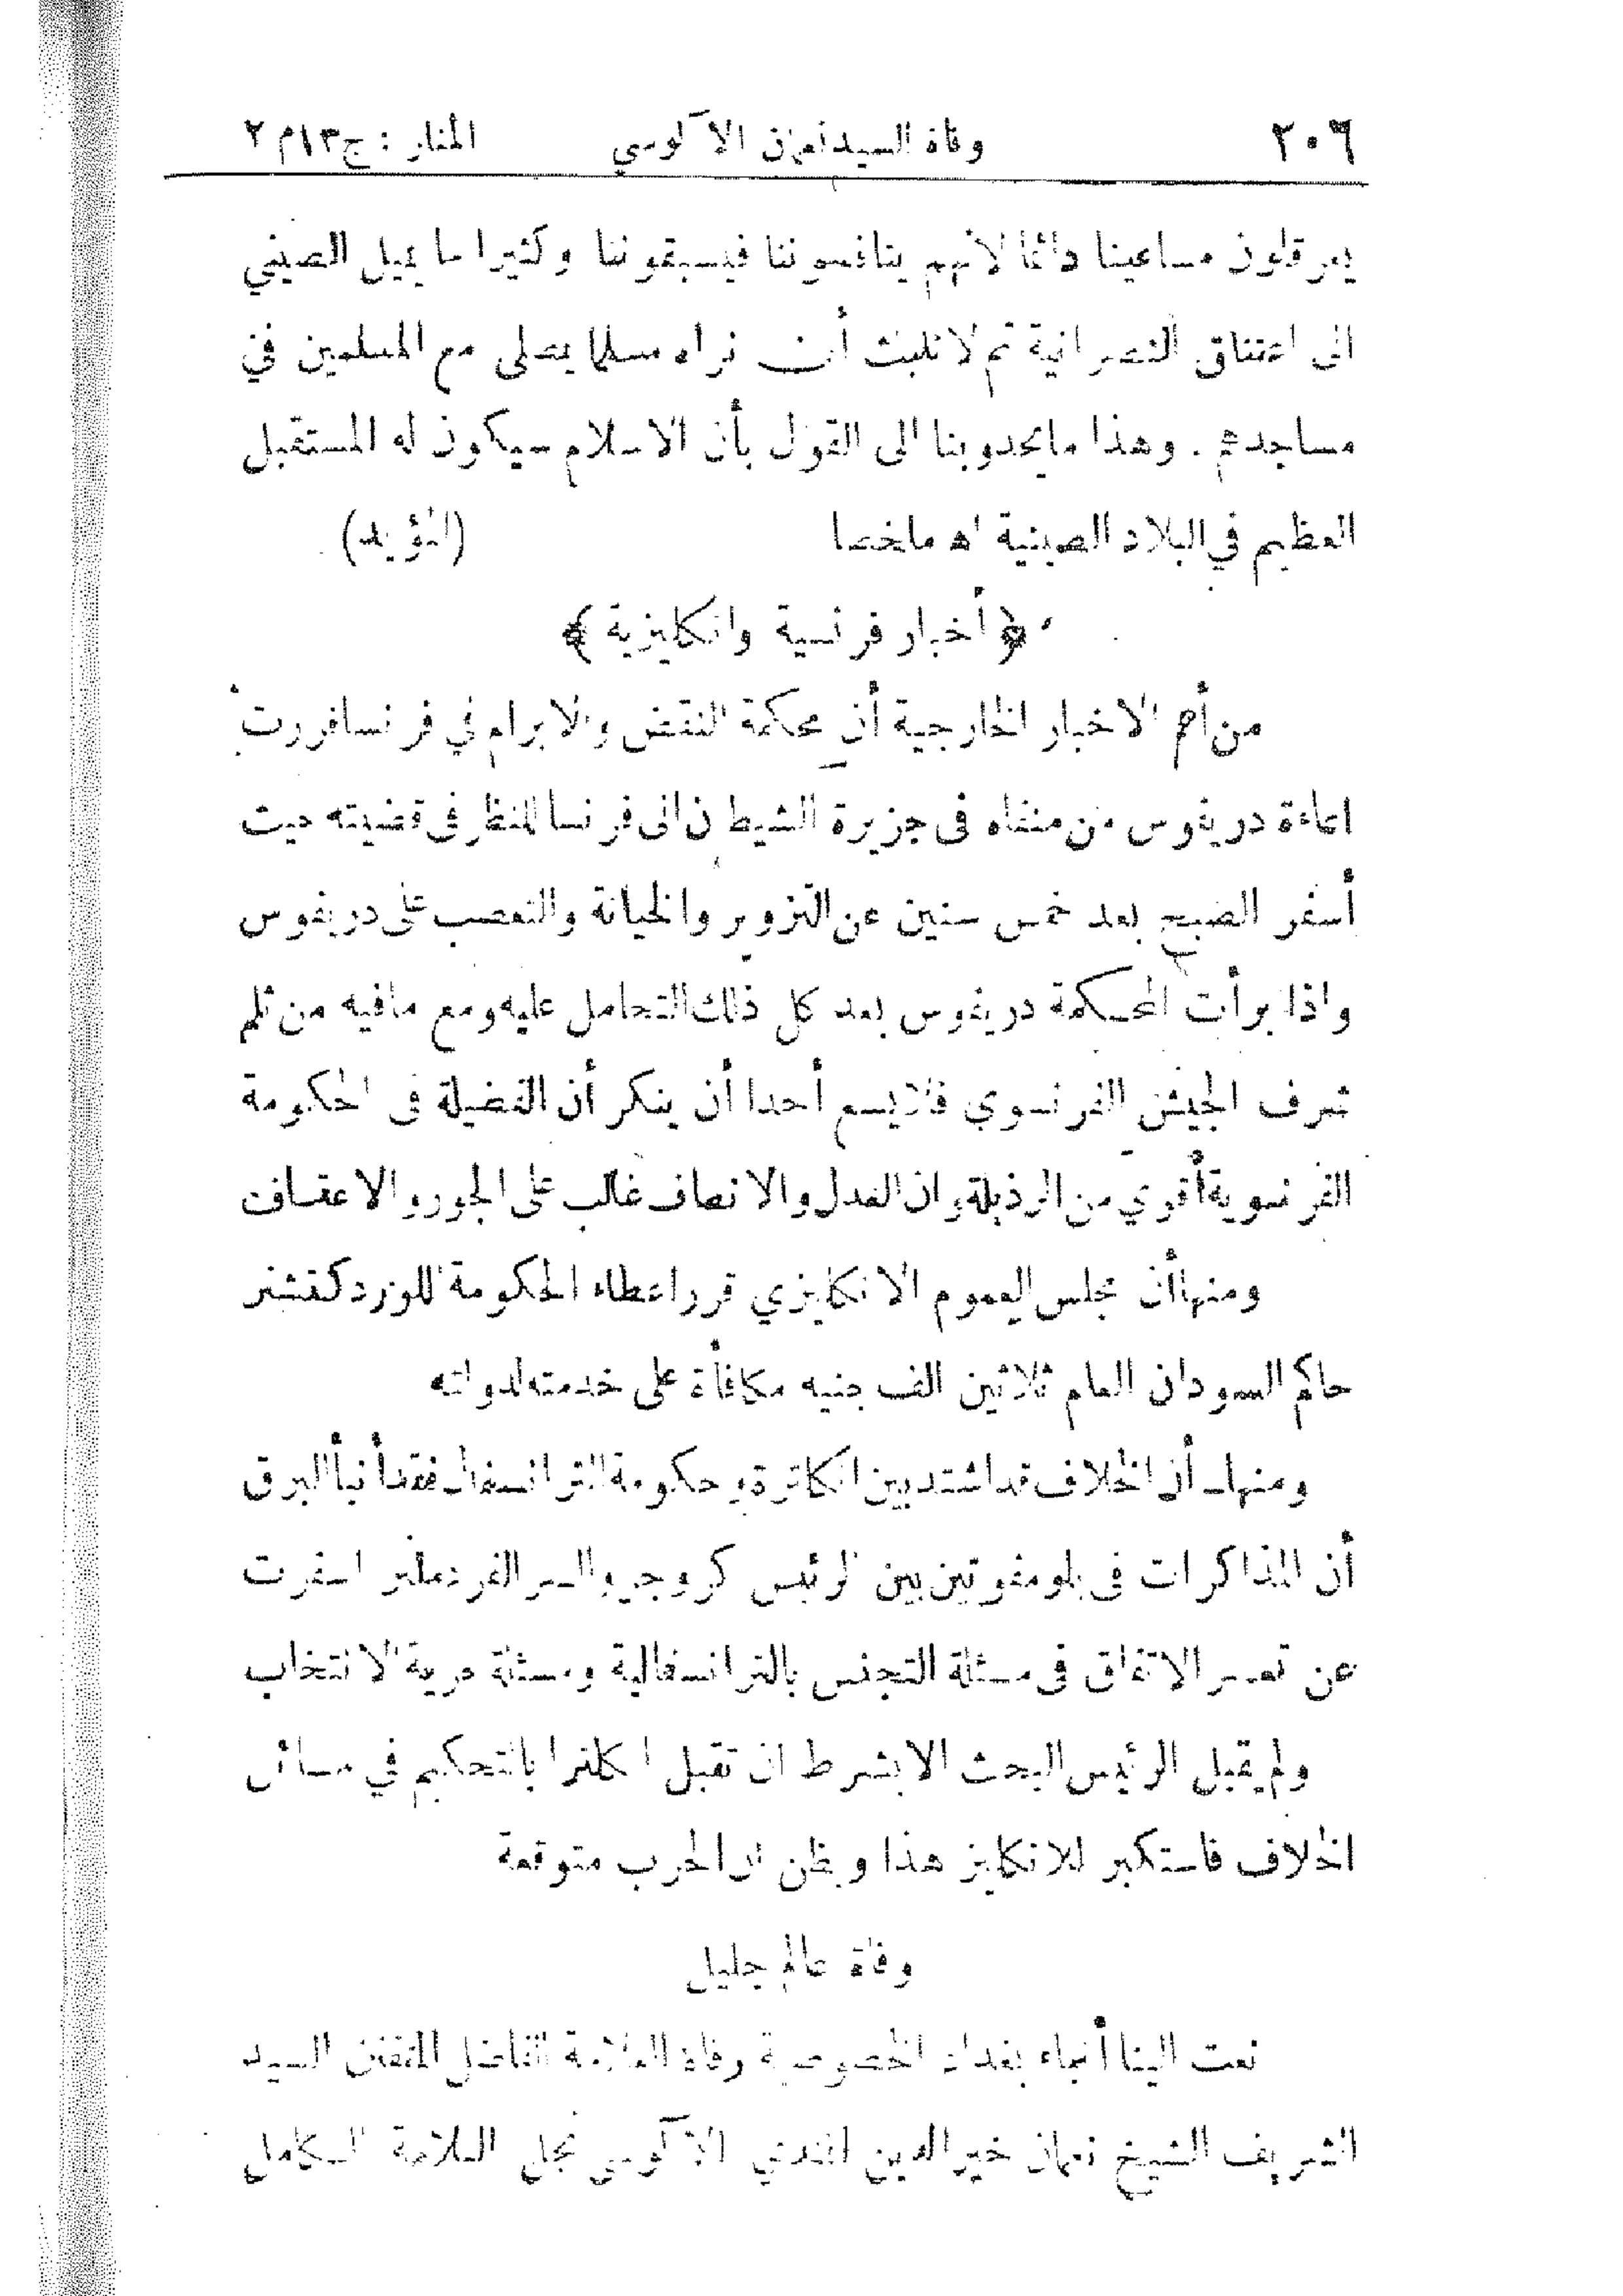 ٢٠٦ وفاة السيد نعمان الآلوسي المنار : ج١٣م ٢
يعرقلون مساعينا دائما لانهم ينافسوننا فيسبقوننا وكثيرا ما يميل الصيني
الى اعتناق النصرانية ثم لا نلبث أن نراه مسلما يصلى مع المسلمين في
مساجدهم . وهذا ما يحدو بنا الى القول بأن الاسلام سيكون له المستقبل
العظيم في البلاد الصينية اه ملخصا (المؤيد)
﴿ أخبار فرنسية وانكليزية ﴾
من أهم الاخبار الخارجية أن محكمة النقض والابرام في فرنسا قررت
اعادة دريفوس من منفاه فى جزيرة الشيطان الى فرنسا للنظر فى قضيته حيث
أسفر الصبح بعد خمس سنين عن التزوير والخيانة والتعصب على دريفوس
واذا برأت المحكمة دريفوس بعد كل ذلك التحامل عليه ومع ما فيه من ثلم
شرف الجيش الفرنسوي فلا يسع أحدا أن ينكر أن الفضيلة فى الحكومة
الفرنسوية أقوي من الرذيلة وان العدل والانصاف غالب على الجور والاعتساف
ومنها أن مجلس العموم الانكليزي قرر اعطاء الحكومة للورد كتشنر
حاكم السودان العام ثلاثين الف جنيه مكافأة على خدمته لدولته
ومنها أن الخلاف قد اشتد بين انكلترة وحكومة الترانسفال فقد أنبأ البرق
أن المذاكرات فى بلومفوتين بين الرئيس كروجر والسر الفرد ملنر اسفرت
عن تعسر الاتفاق فى مسئلة التجنس بالترانسفالية ومسئلة حرية الانتخاب
ولم يقبل الرئيس البحث الا بشرط ان تقبل انكلترا بالتحكيم في مسائل
الخلاف فاستكبر الانكليز هذا ويظن ان الحرب متوقعة
وفاة عالم جليل
نعت الينا أنباء بغداد الخصوصية وفاة العلامة الفاضل المتفنن السيد
الشريف الشيخ نعمان خير الدين افندي الآلوسي نجل العلامة الكامل